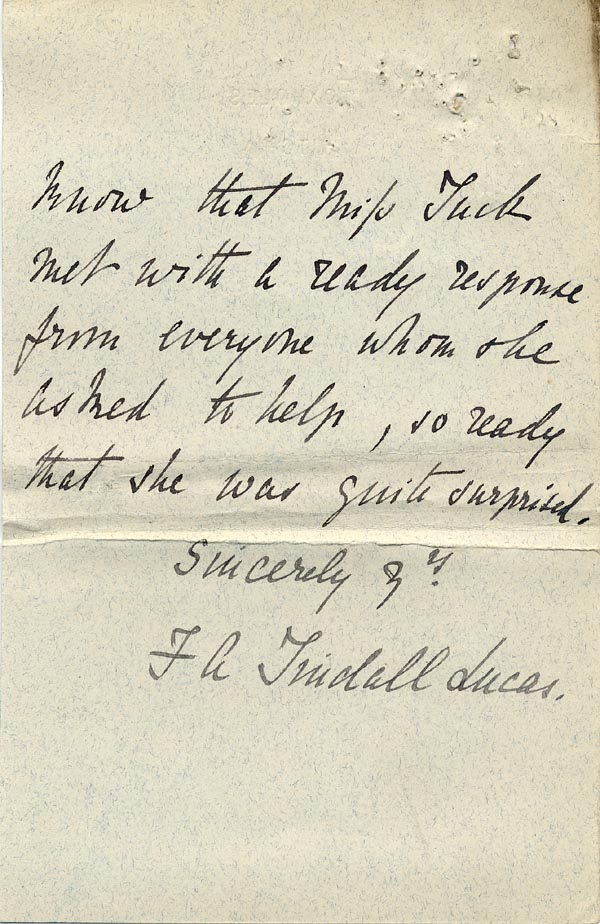 know that Miss Tuck
met with a ready response
from everyone whom she
asked to help, so ready
that she was quite surprised.
Sincerely yrs
F A Tindall Lucas.